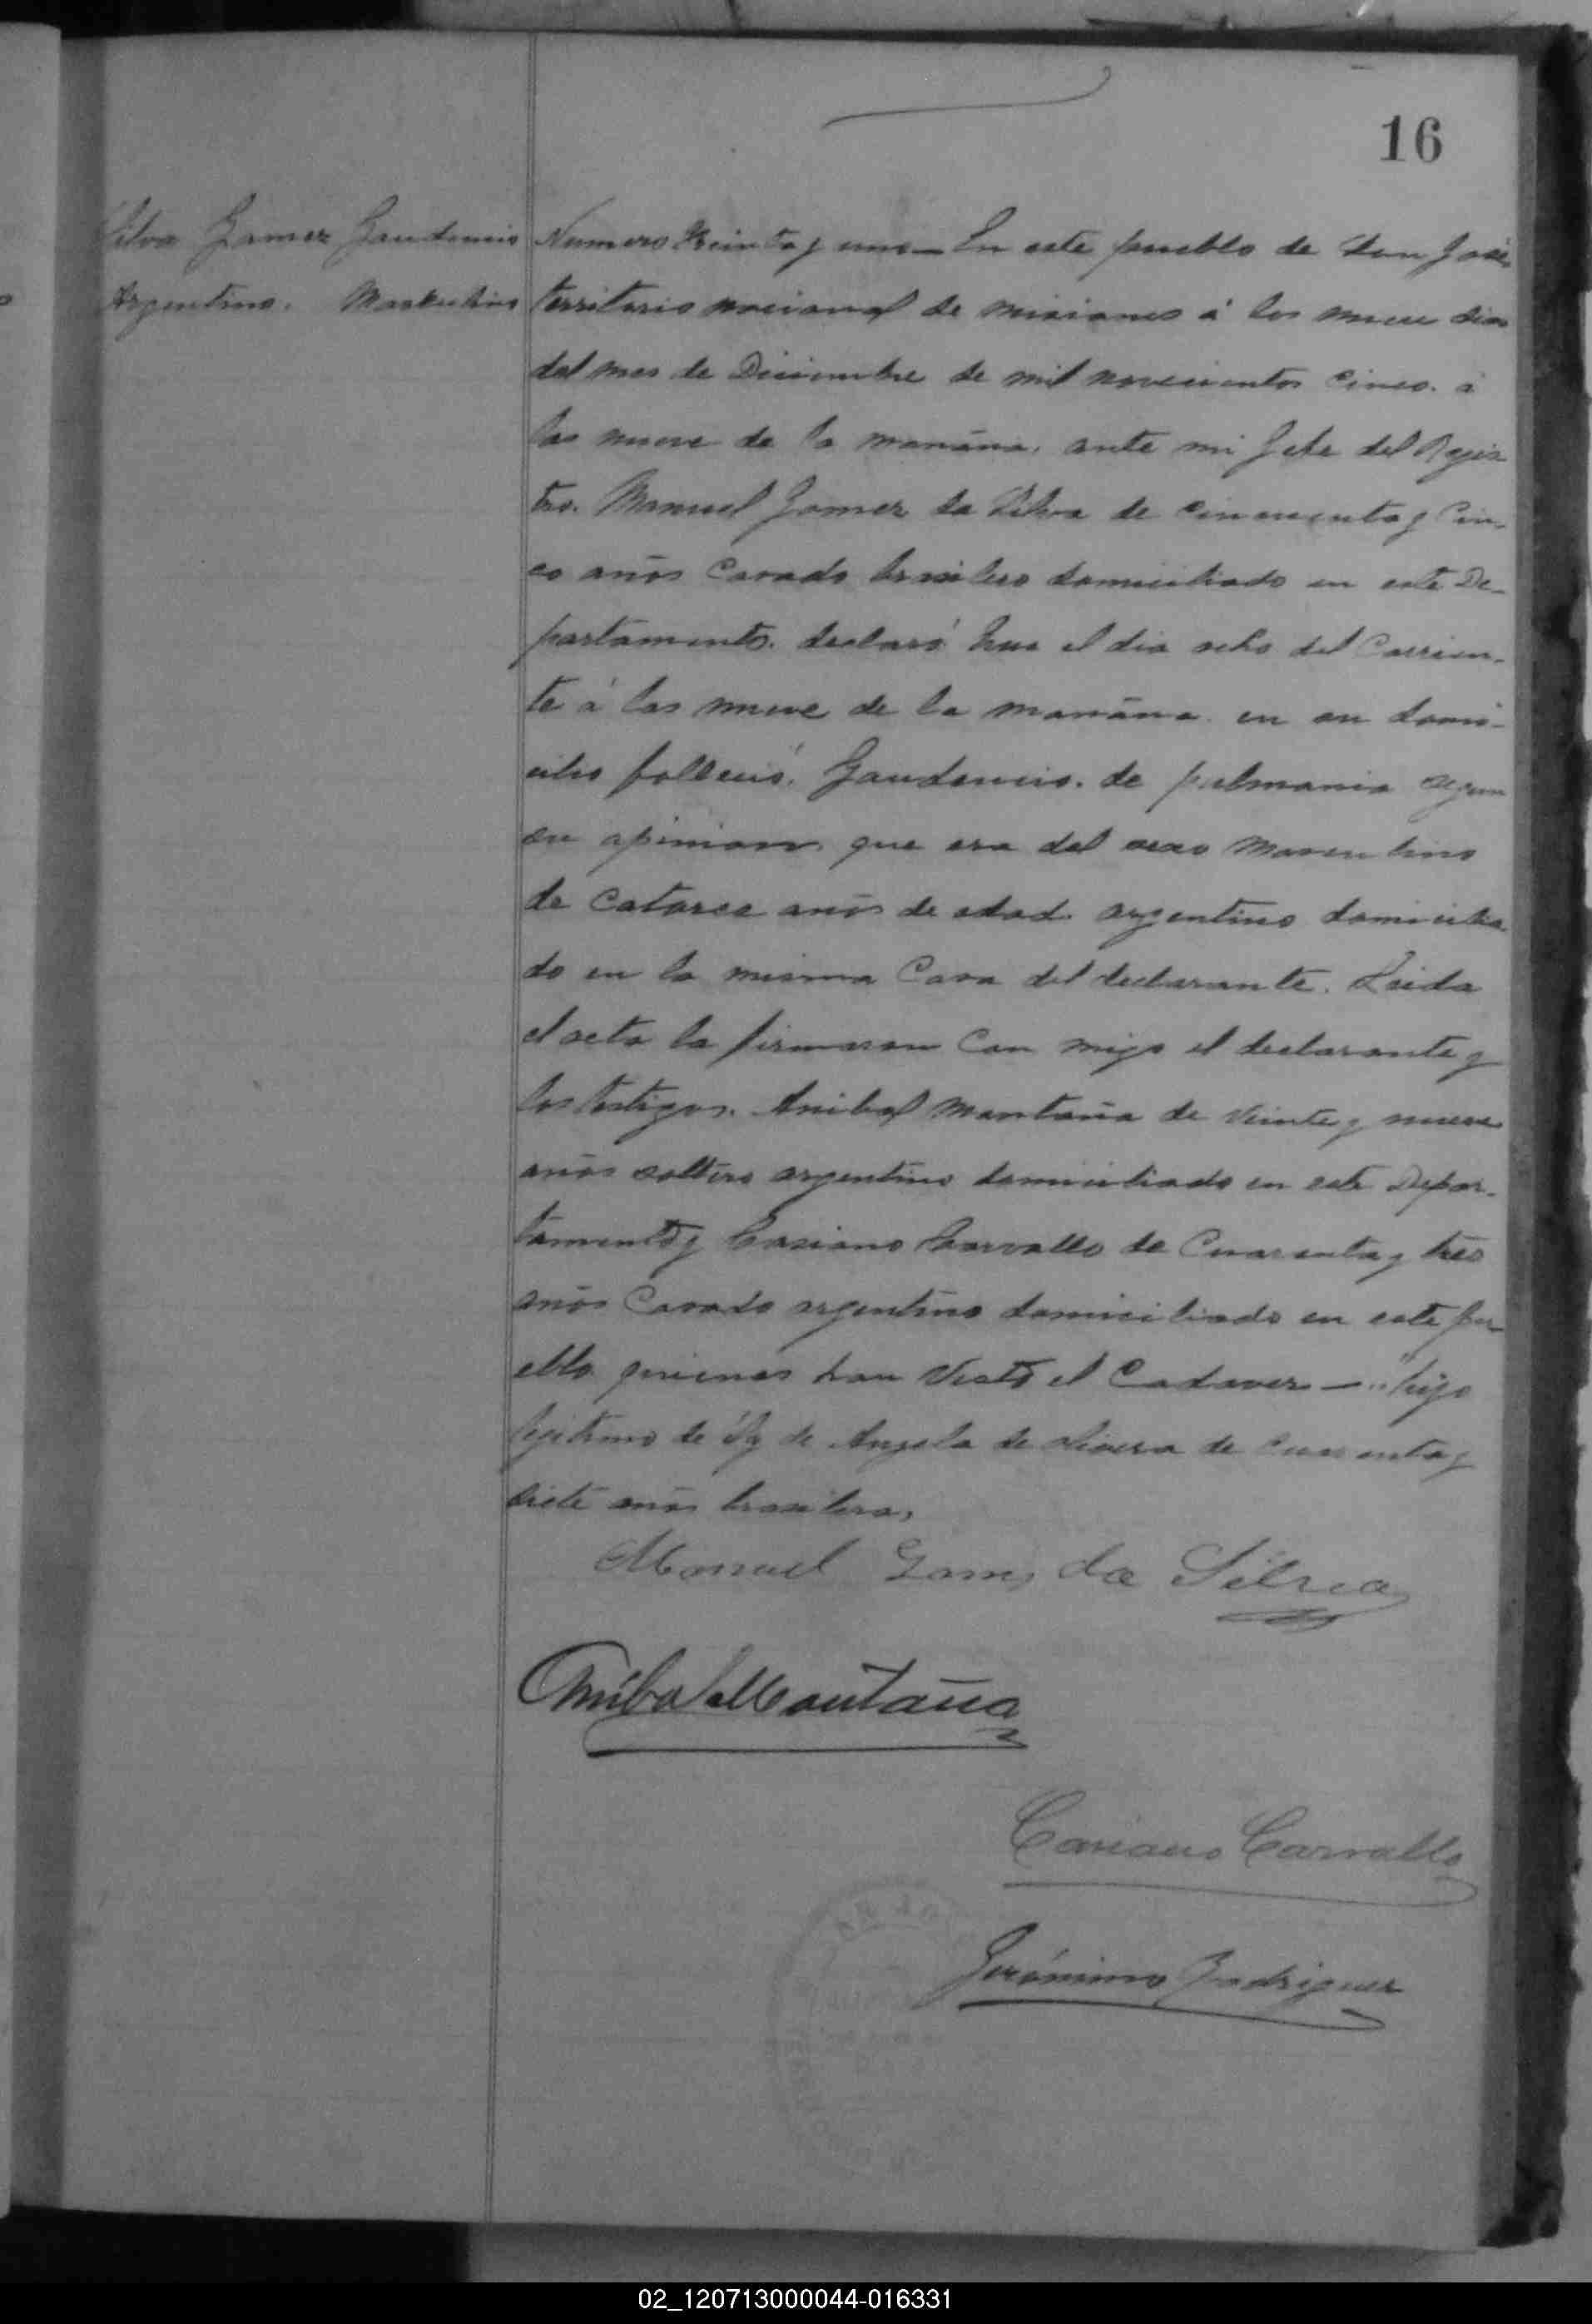 16
Silva Gomez Gaudencio
Argentino. Masculino
Numero treinta y uno — En este pueblo de San José,
territorio nacional de Misiones á los nueve dias
del mes de Diciembre de mil novecientos cinco. á
las nueve de la mañana, ante mi Jefe del Rejis
tro. Manuel Gomez da Silva de cincuenta y cin-
co años Casado brasilero domiciliado en este De-
partamento. declaró que el dia ocho del Corrien-
te á las nueve de la mañana en su domi-
cilio falleció. Gaudencio. de pulmonia segun
su opinion, que era del sexo Masculino
de Catorce años de edad argentino domicilia
do en la misma Casa del declarante. Leida
el acta la firmaron Con migo el declarante y
los testigos. Anibal Montaña de Veinte y nueve
años soltero argentino domiciliado en este Depar-
tamento y Casiano Carvallo de Cuarenta y tres
años Casado argentino domiciliado en este pu-
eblo quienes han Visto el Cadaver — "hijo
lejitimo de él y de Angela de Olivera de Cuarenta y
siete años brasilera,
Manuel Gomes da Silva
Anibal Montaña
Casiano Carvallo
Jerónimo Rodriguez
02_120713000044-016331